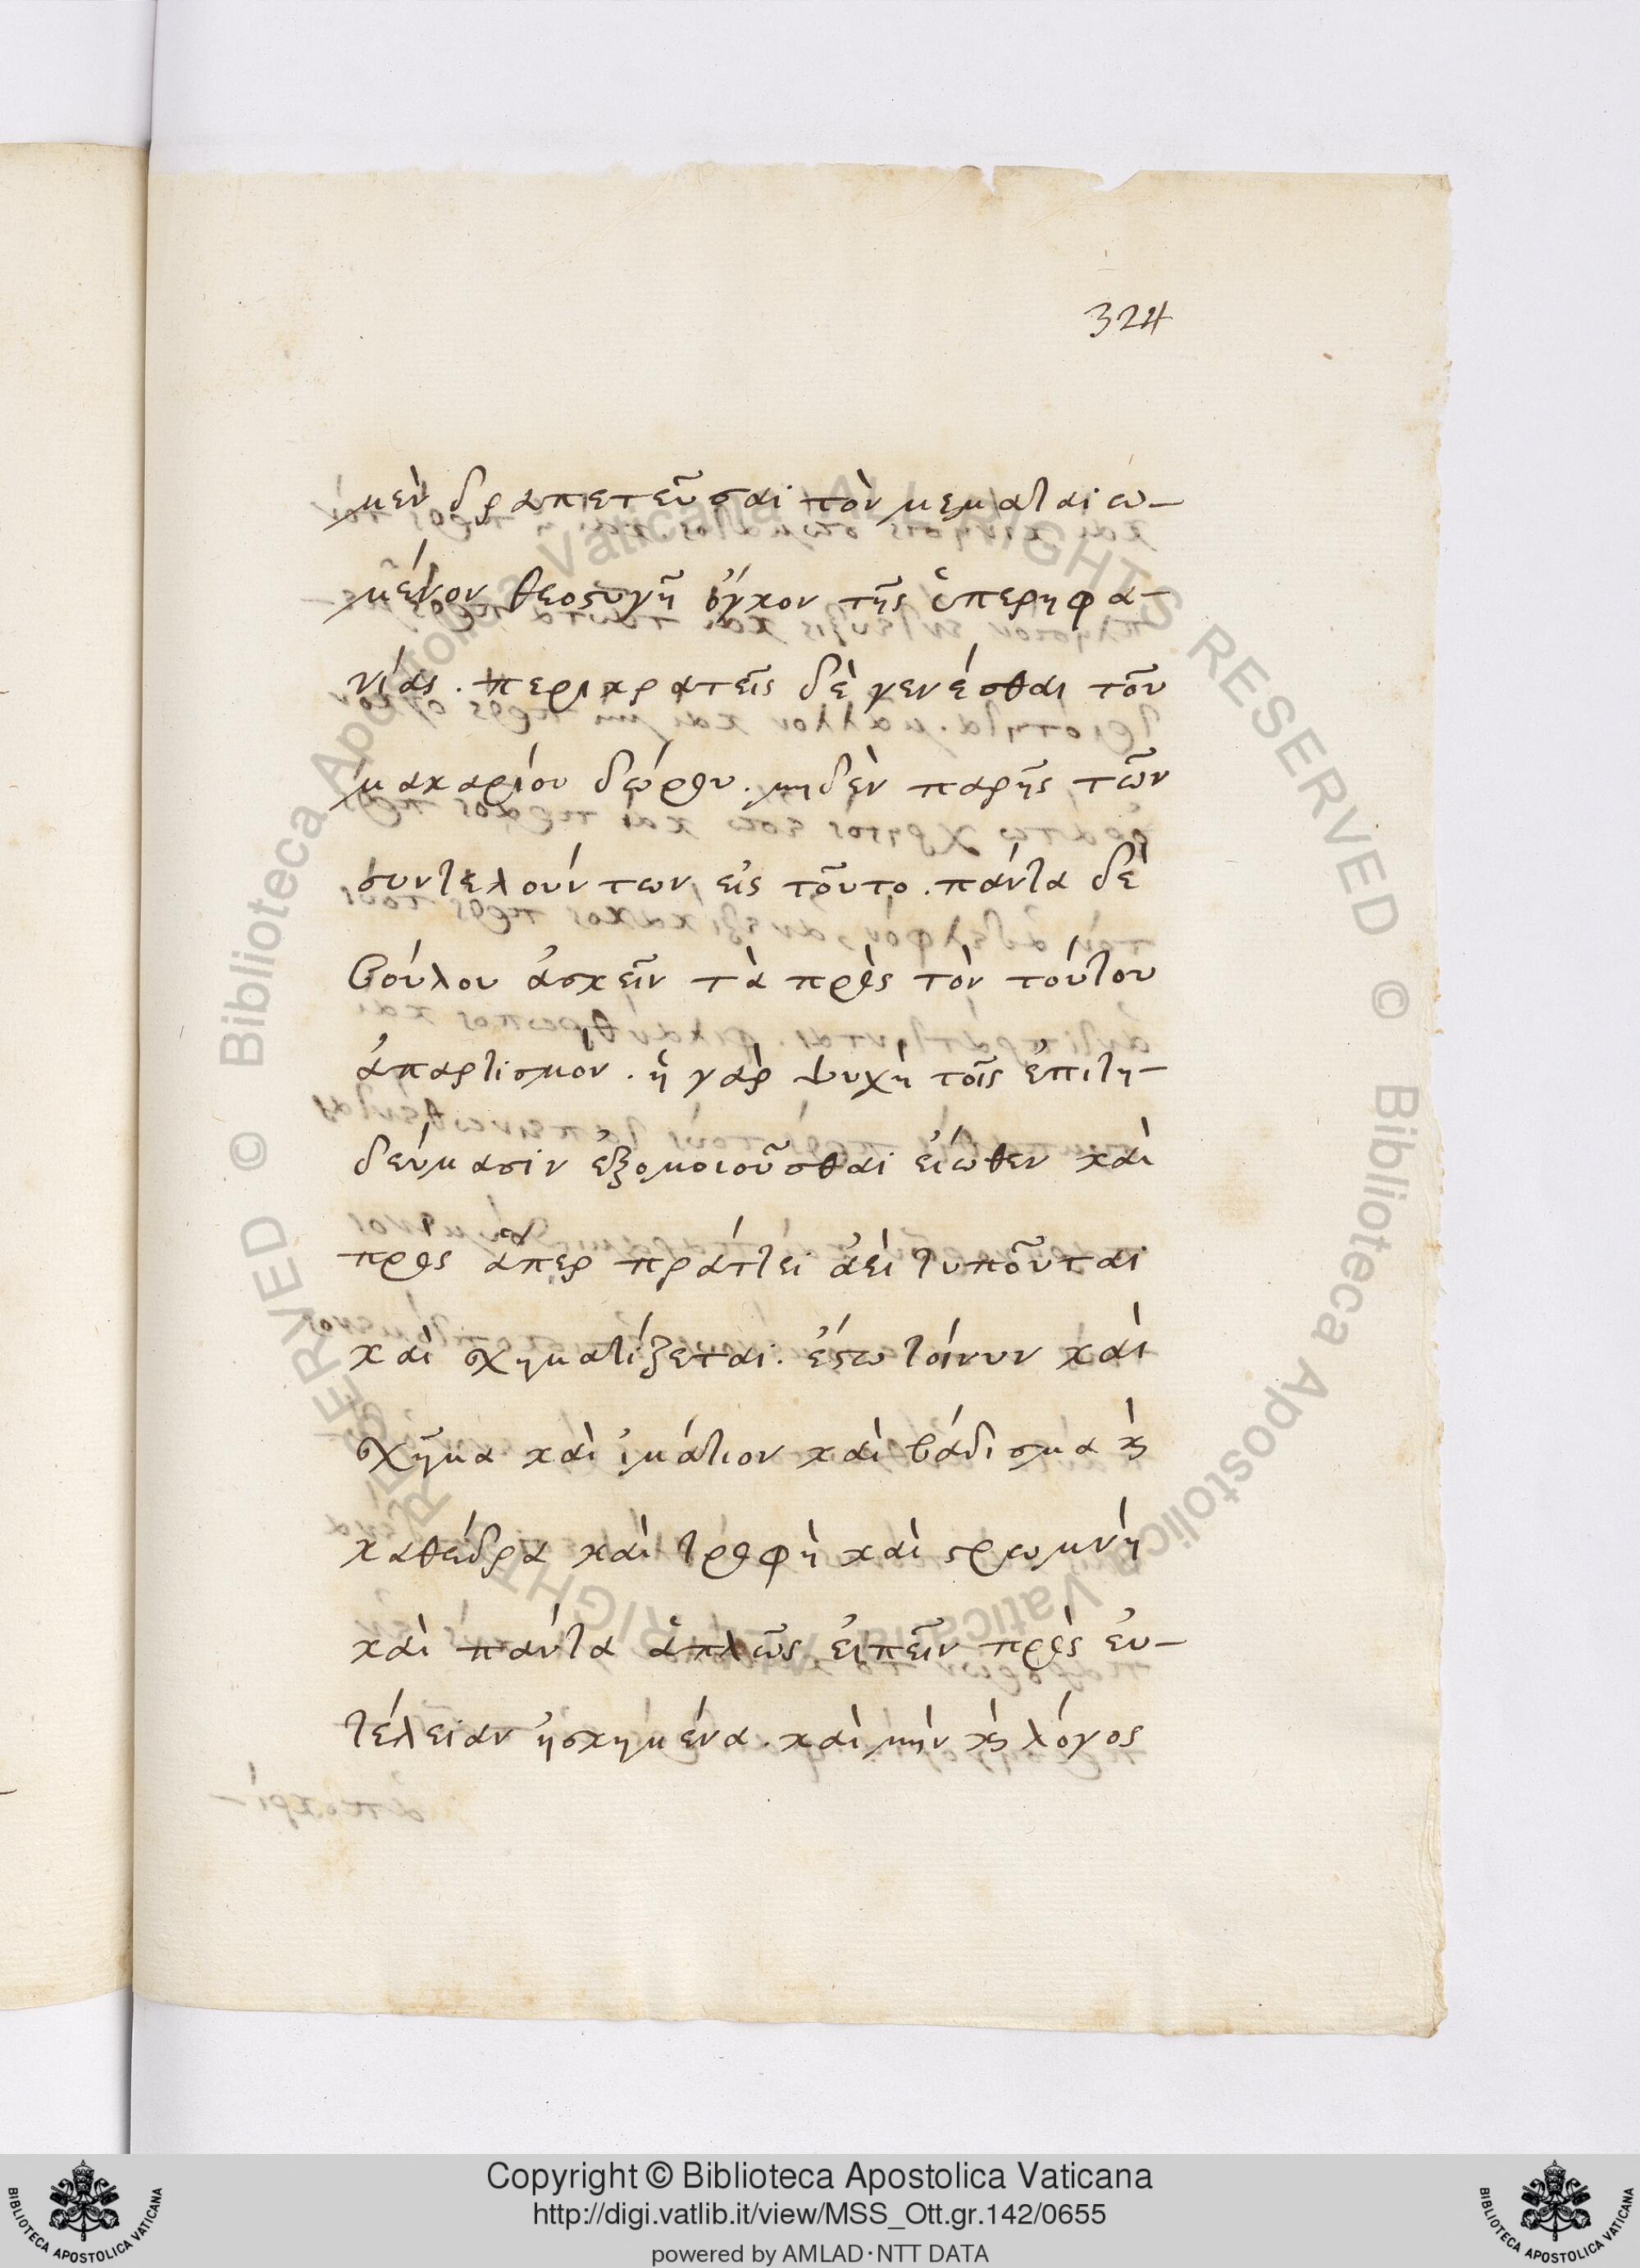 324
μὲν δραπετεῦσαι τὸν μεματαιω-
μένον θεοστυγῆ ὄγκον τῆς ὑπερηφα-
νίας. περικρατεῖς δὲ γενέσθαι τοῦ
μακαρίου δώρου. μηδὲν παρῇς τῶν
συντελούντων εἰς τοῦτο. πάντα δὲ
βούλου ἀσκεῖν τὰ πρὸς τὸν τούτου
ἀπαρτισμον. ἡ γὰρ ψυχὴ τοῖς ἐπιτη-
δεύμασιν ἐξομοιοῦσθαι εἴωθεν καὶ
πρὸς ἅπερ πράττει ἀεὶ τυποῦται
καὶ σχηματίζεται. ἔστω τοίνυν καὶ
σχῆμα καὶ ἱμάτιον καὶ βάδισμα καὶ
καθέδρα καὶ τροφὴ καὶ στρωμνὴ
καὶ πάντα ἁπλῶς εἰπεῖν πρὸς εὐ-
τέλειαν ἠσκημένα. καὶ μὴν καὶ λόγος
Copyright © Biblioteca Apostolica Vaticana
http://digi.vatlib.it/view/MSS_Ott.gr.142/0655
powered by AMLAD·NTT DATA
BIBLIOTECA APOSTOLICA VATICANA
BIBLIOTECA APOSTOLICA VATICANA